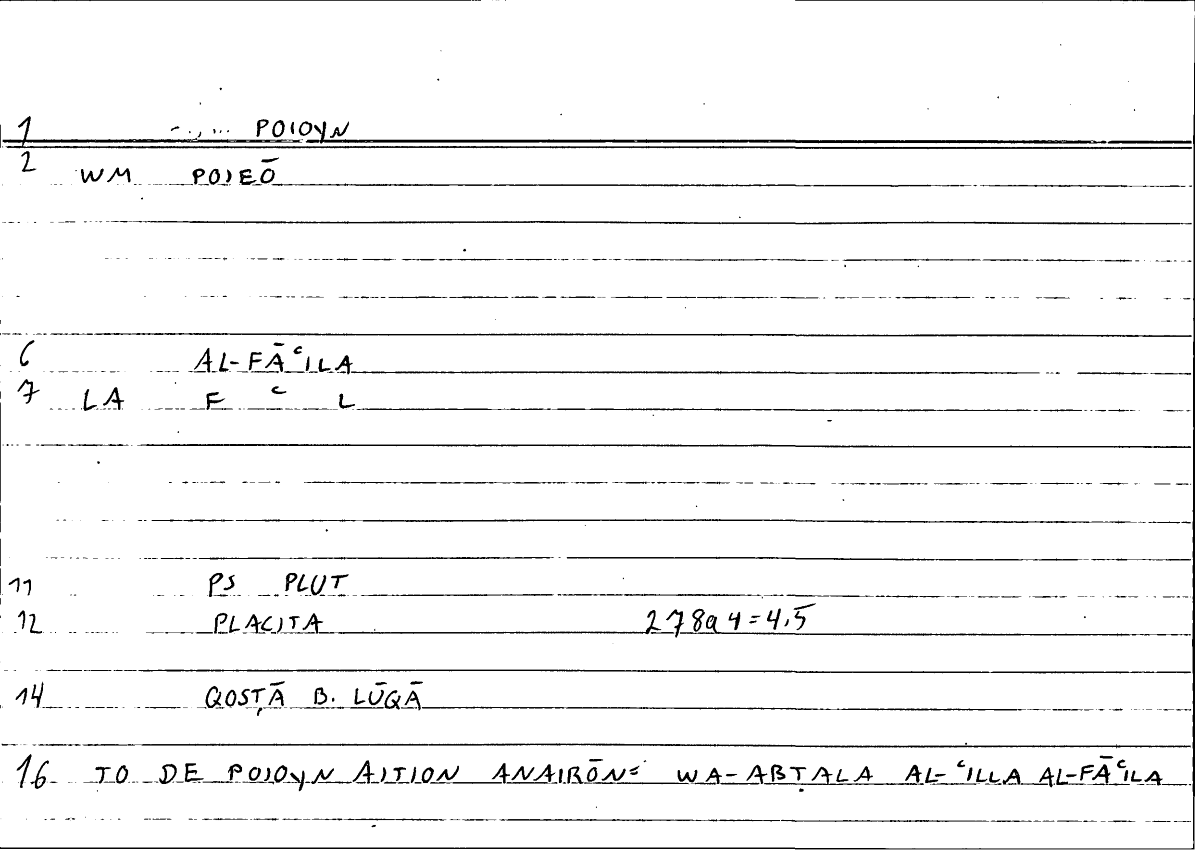 1 POIOYN
2 WM POIEŌ
6 AL-FĀʿILA
7 LA F ʿ L
11 PS PLUT
12 PLACITA 278a4=4,5
14 QOSṬĀ B. LŪQĀ
16 TO DE POIOYN AITION ANAIRŌN: WA-ABṬALA AL-ʿILLA AL-FĀʿILA